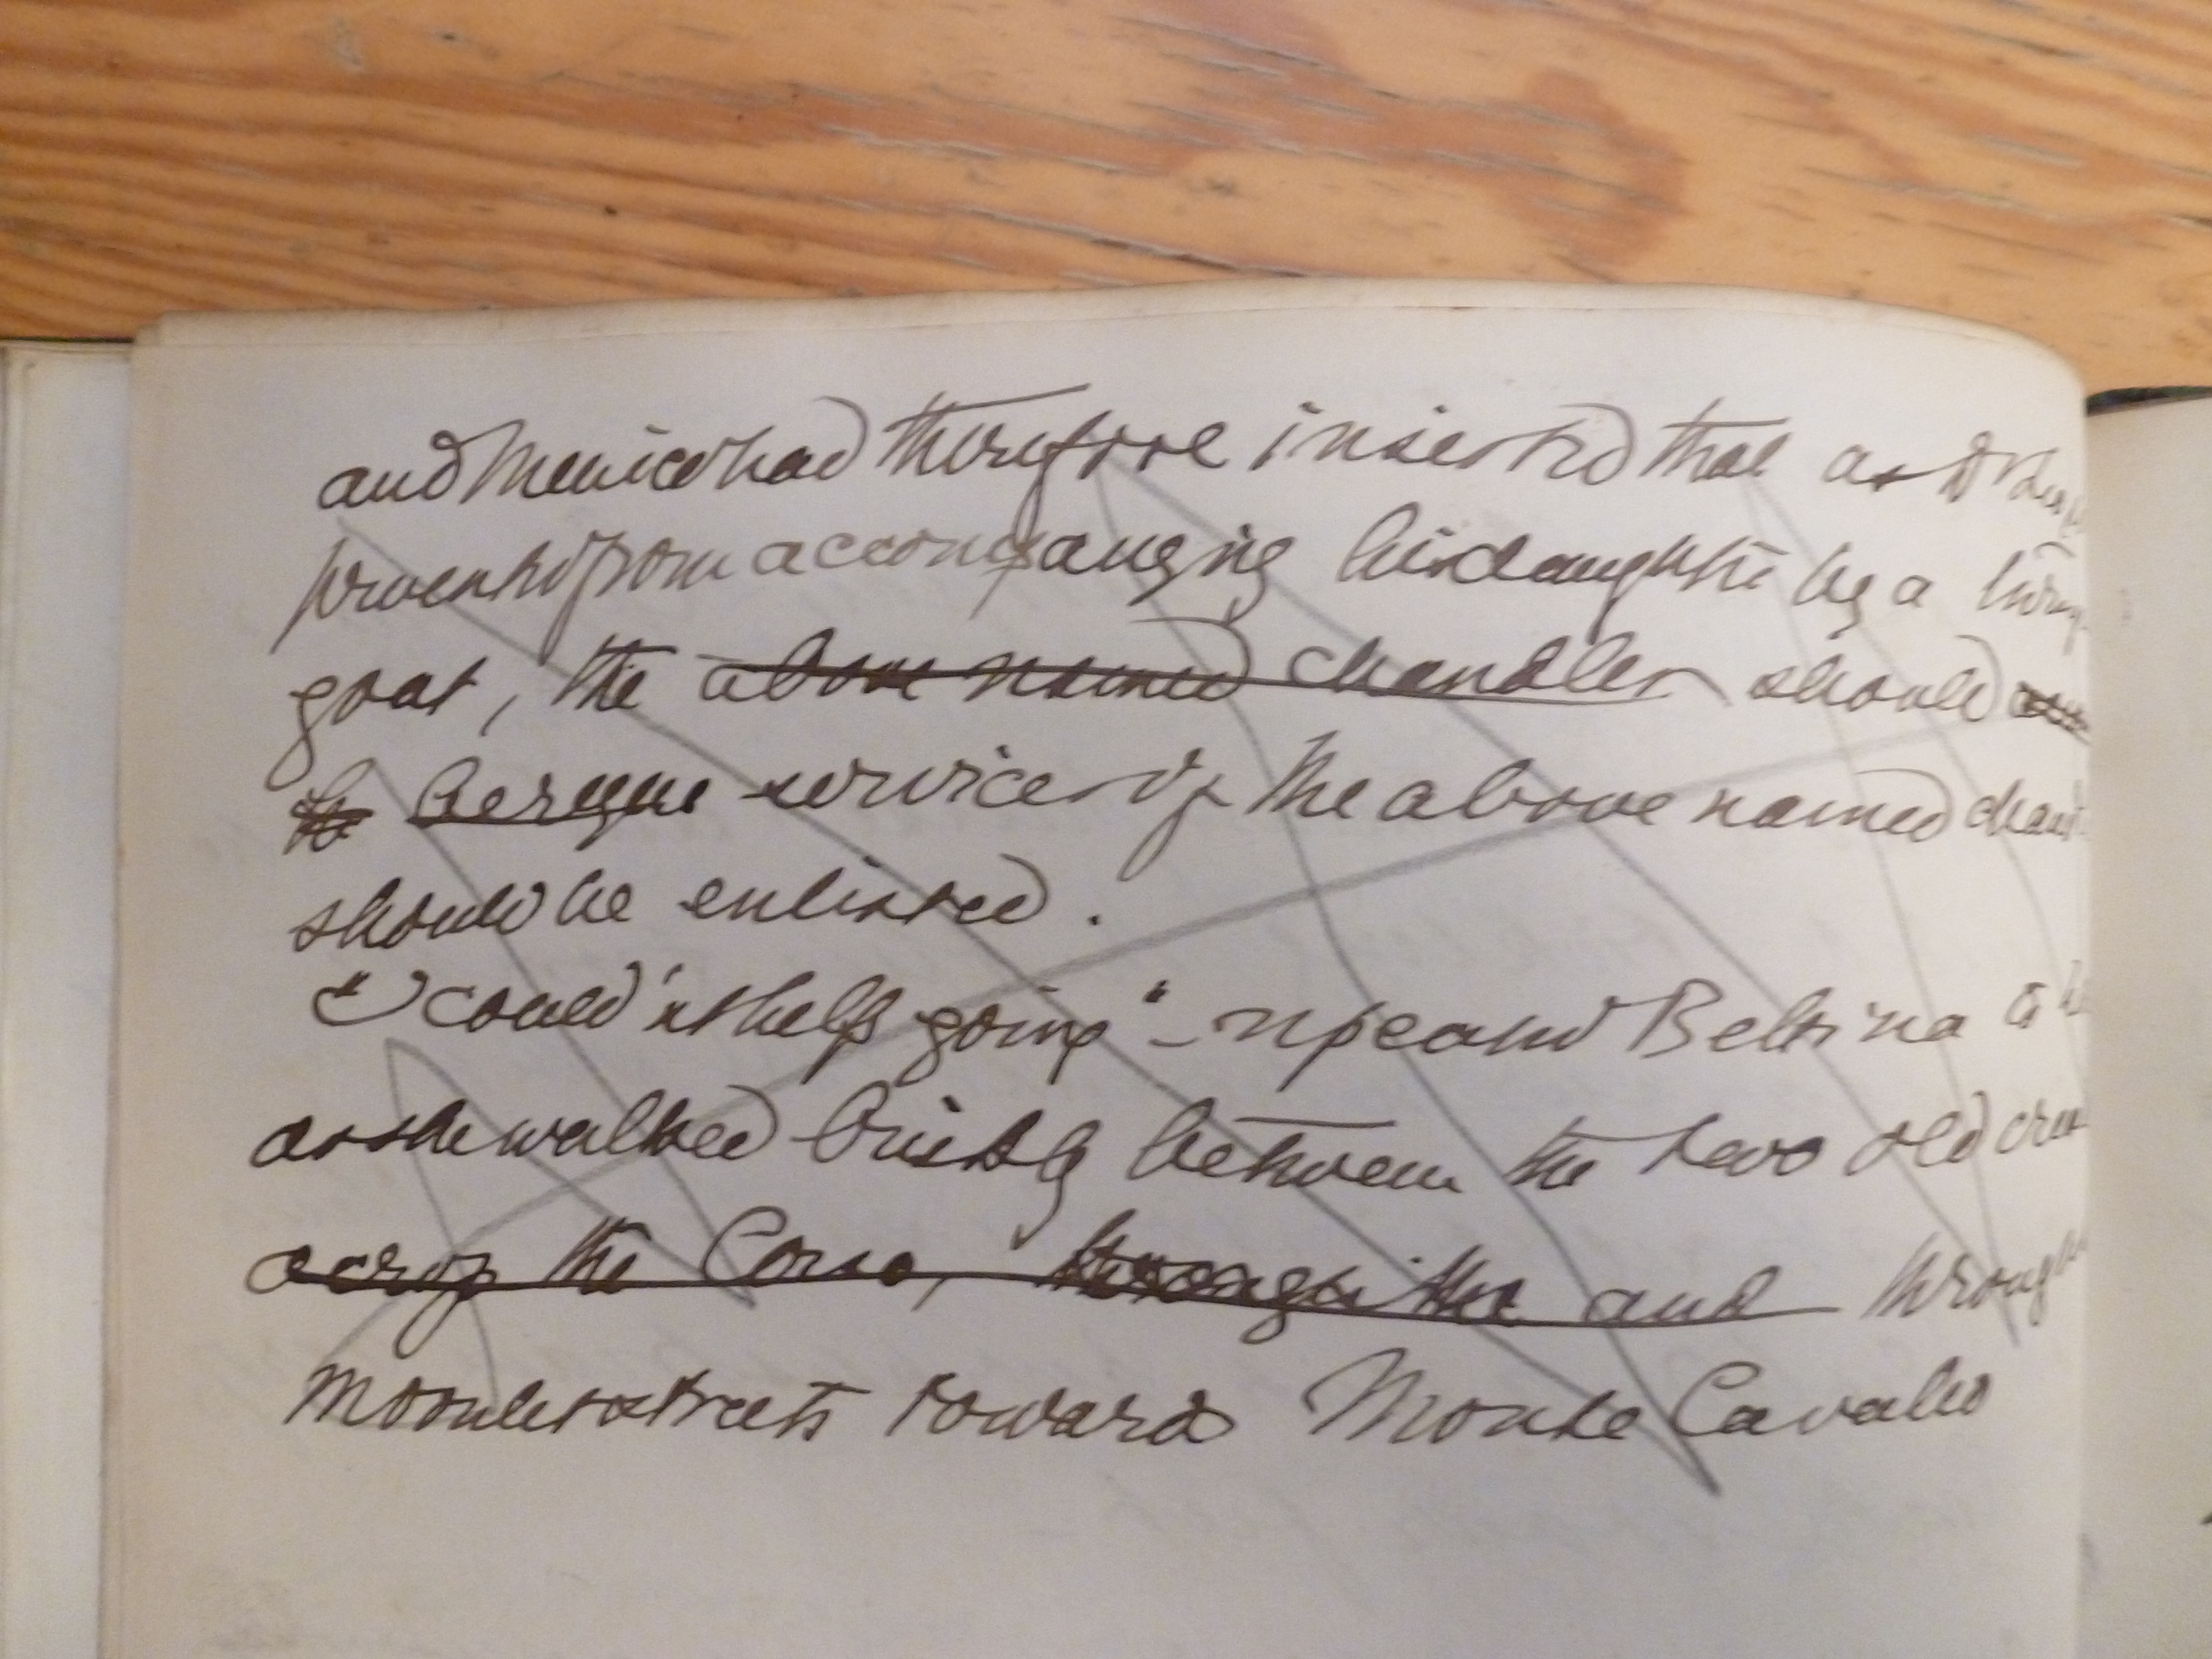 and Menico had therefore insisted that as
prevented from accompanying his daughter by a
goat, the above named chandler should
services of the above named
should be enlisted.
"I could'nt help going" - Bettina
as she walked briskly between the two old
across the Corso, through the and through
moonlit streets towards Monte Cavallo